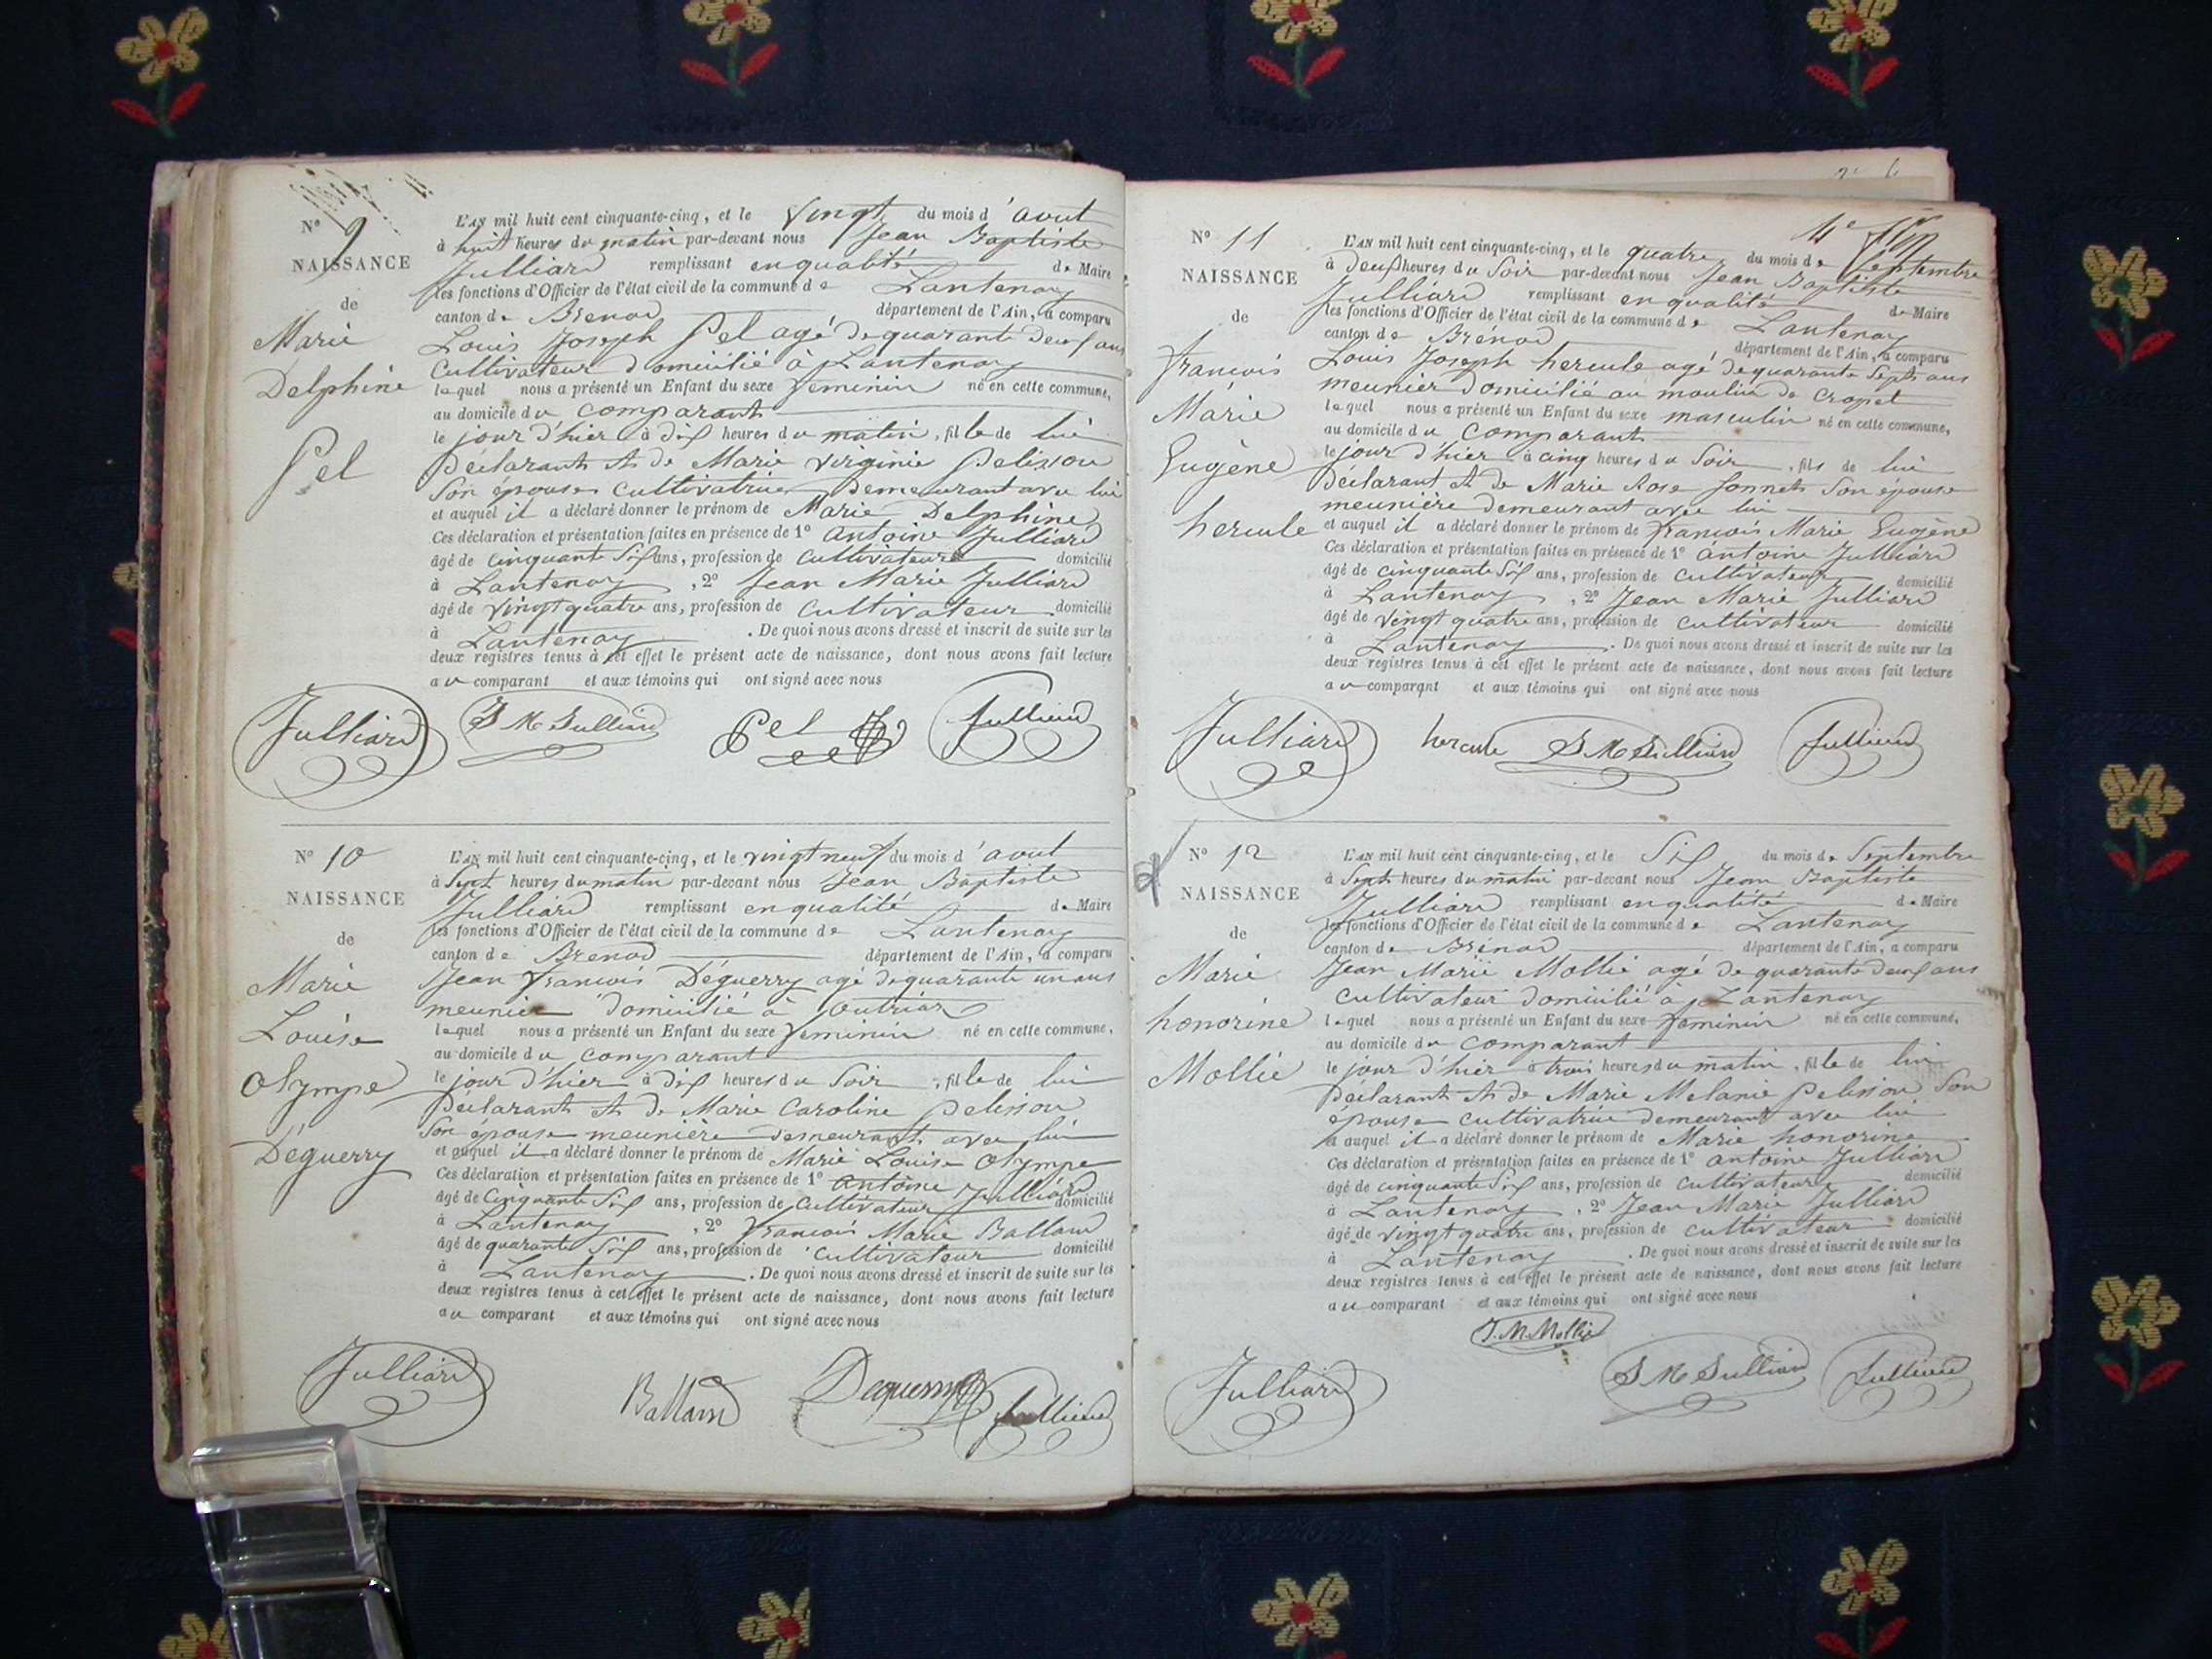 N° 9
NAISSANCE
de
Marie
Delphine
Pel
L'AN mil huit cent cinquante-cinq, et le vingt du mois d'avout
à huit heures du matin par-devant nous Jean Baptiste
Julliard remplissant en qualité de Maire
les fonctions d'Officier de l'état civil de la commune de Lantenay
canton de Brenod département de l'Ain, a comparu
Louis Joseph Pel agé de quarante deux ans
Cultivateur domicilié à Lantenay
lequel nous a présenté un Enfant du sexe feminin né en cette commune,
au domicile du comparant
le jour d'hier à dix heures du matin, fille de lui
Déclarant et de Marie Virginie Pelisson
Son épouse cultivatrice demeurant avec lui
et auquel il a déclaré donner le prénom de Marie Delphine
Ces déclaration et présentation faites en présence de 1° Antoine Julliard
âgé de cinquante six ans, profession de cultivateur domicilié
à Lantenay, 2° Jean Marie Julliard
âgé de vingt quatre ans, profession de cultivateur domicilié
à Lantenay. De quoi nous avons dressé et inscrit de suite sur les
deux registres tenus à cet effet le présent acte de naissance, dont nous avons fait lecture
au comparant et aux témoins qui ont signé avec nous
Julliard J M Julliard Pel Julliard
N° 10
NAISSANCE
de
Marie
Louise
Olympe
Déguerry
L'AN mil huit cent cinquante-cinq, et le vingt neuf du mois d'avout
à Sept heures du matin par-devant nous Jean Baptiste
Julliard remplissant en qualité de Maire
les fonctions d'Officier de l'état civil de la commune de Lantenay
canton de Brenod département de l'Ain, a comparu
Jean François Déguerry agé de quarante un ans
meunier domicilié à Outriaz
lequel nous a présenté un Enfant du sexe feminin né en cette commune,
au domicile du comparant
le jour d'hier à dix heures du Soir, fille de lui
Déclarant et de Marie Caroline Pelisson
Son épouse meunière demeurant avec lui
et auquel il a déclaré donner le prénom de Marie Louise Olympe
Ces déclaration et présentation faites en présence de 1° Antoine Julliard
âgé de Cinquante Six ans, profession de Cultivateur domicilié
à Lantenay, 2° François Marie Balland
âgé de quarante Six ans, profession de cultivateur domicilié
à Lantenay. De quoi nous avons dressé et inscrit de suite sur les
deux registres tenus à cet effet le présent acte de naissance, dont nous avons fait lecture
au comparant et aux témoins qui ont signé avec nous
Julliard Balland Deguerry Julliard
N° 11
NAISSANCE
de
François
Marie
Eugène
hercule
4e
L'AN mil huit cent cinquante-cinq, et le quatre du mois de Septembre
à deux heures du Soir par-devant nous Jean Baptiste
Julliard remplissant en qualité de Maire
les fonctions d'Officier de l'état civil de la commune de Lantenay
canton de Brénod département de l'Ain, a comparu
Louis Joseph hercule agé de quarante Sept ans
meunier domicilié au moulin de Cropet
lequel nous a présenté un Enfant du sexe masculin né en cette commune,
au domicile du comparant
le jour d'hier à cinq heures du Soir, fils de lui
Déclarant et de Marie Rose Sonnet Son épouse
meunière demeurant avec lui
et auquel il a déclaré donner le prénom de François Marie Eugène
Ces déclaration et présentation faites en présence de 1° antoine Julliard
âgé de cinquante Six ans, profession de cultivateur domicilié
à Lantenay, 2° Jean Marie Julliard
âgé de vingt quatre ans, profession de cultivateur domicilié
à Lantenay. De quoi nous avons dressé et inscrit de suite sur les
deux registres tenus à cet effet le présent acte de naissance, dont nous avons fait lecture
au comparant et aux témoins qui ont signé avec nous
Julliard hercule J M Julliard Julliard
N° 12
NAISSANCE
de
Marie
honorine
Mollie
L'AN mil huit cent cinquante-cinq, et le Six du mois de Septembre
à Sept heures du matin par-devant nous Jean Baptiste
Julliard remplissant en qualité de Maire
les fonctions d'Officier de l'état civil de la commune de Lantenay
canton de Brénod département de l'Ain, a comparu
Jean Marie Mollie agé de quarante deux ans
cultivateur domicilié à Lantenay
lequel nous a présenté un Enfant du sexe feminin né en cette commune,
au domicile du comparant
le jour d'hier à trois heures du matin, fille de lui
Déclarant et de Marie Melanie Pelisson Son
épouse cultivatrice demeurant avec lui
et auquel il a déclaré donner le prénom de Marie honorine
Ces déclaration et présentation faites en présence de 1° antoine Julliard
âgé de cinquante Six ans, profession de cultivateur domicilié
à Lantenay, 2° Jean Marie Julliard
âgé de vingt quatre ans, profession de cultivateur domicilié
à Lantenay. De quoi nous avons dressé et inscrit de suite sur les
deux registres tenus à cet effet le présent acte de naissance, dont nous avons fait lecture
au comparant et aux témoins qui ont signé avec nous
J. M. Mollie
Julliard J M Julliard Julliard